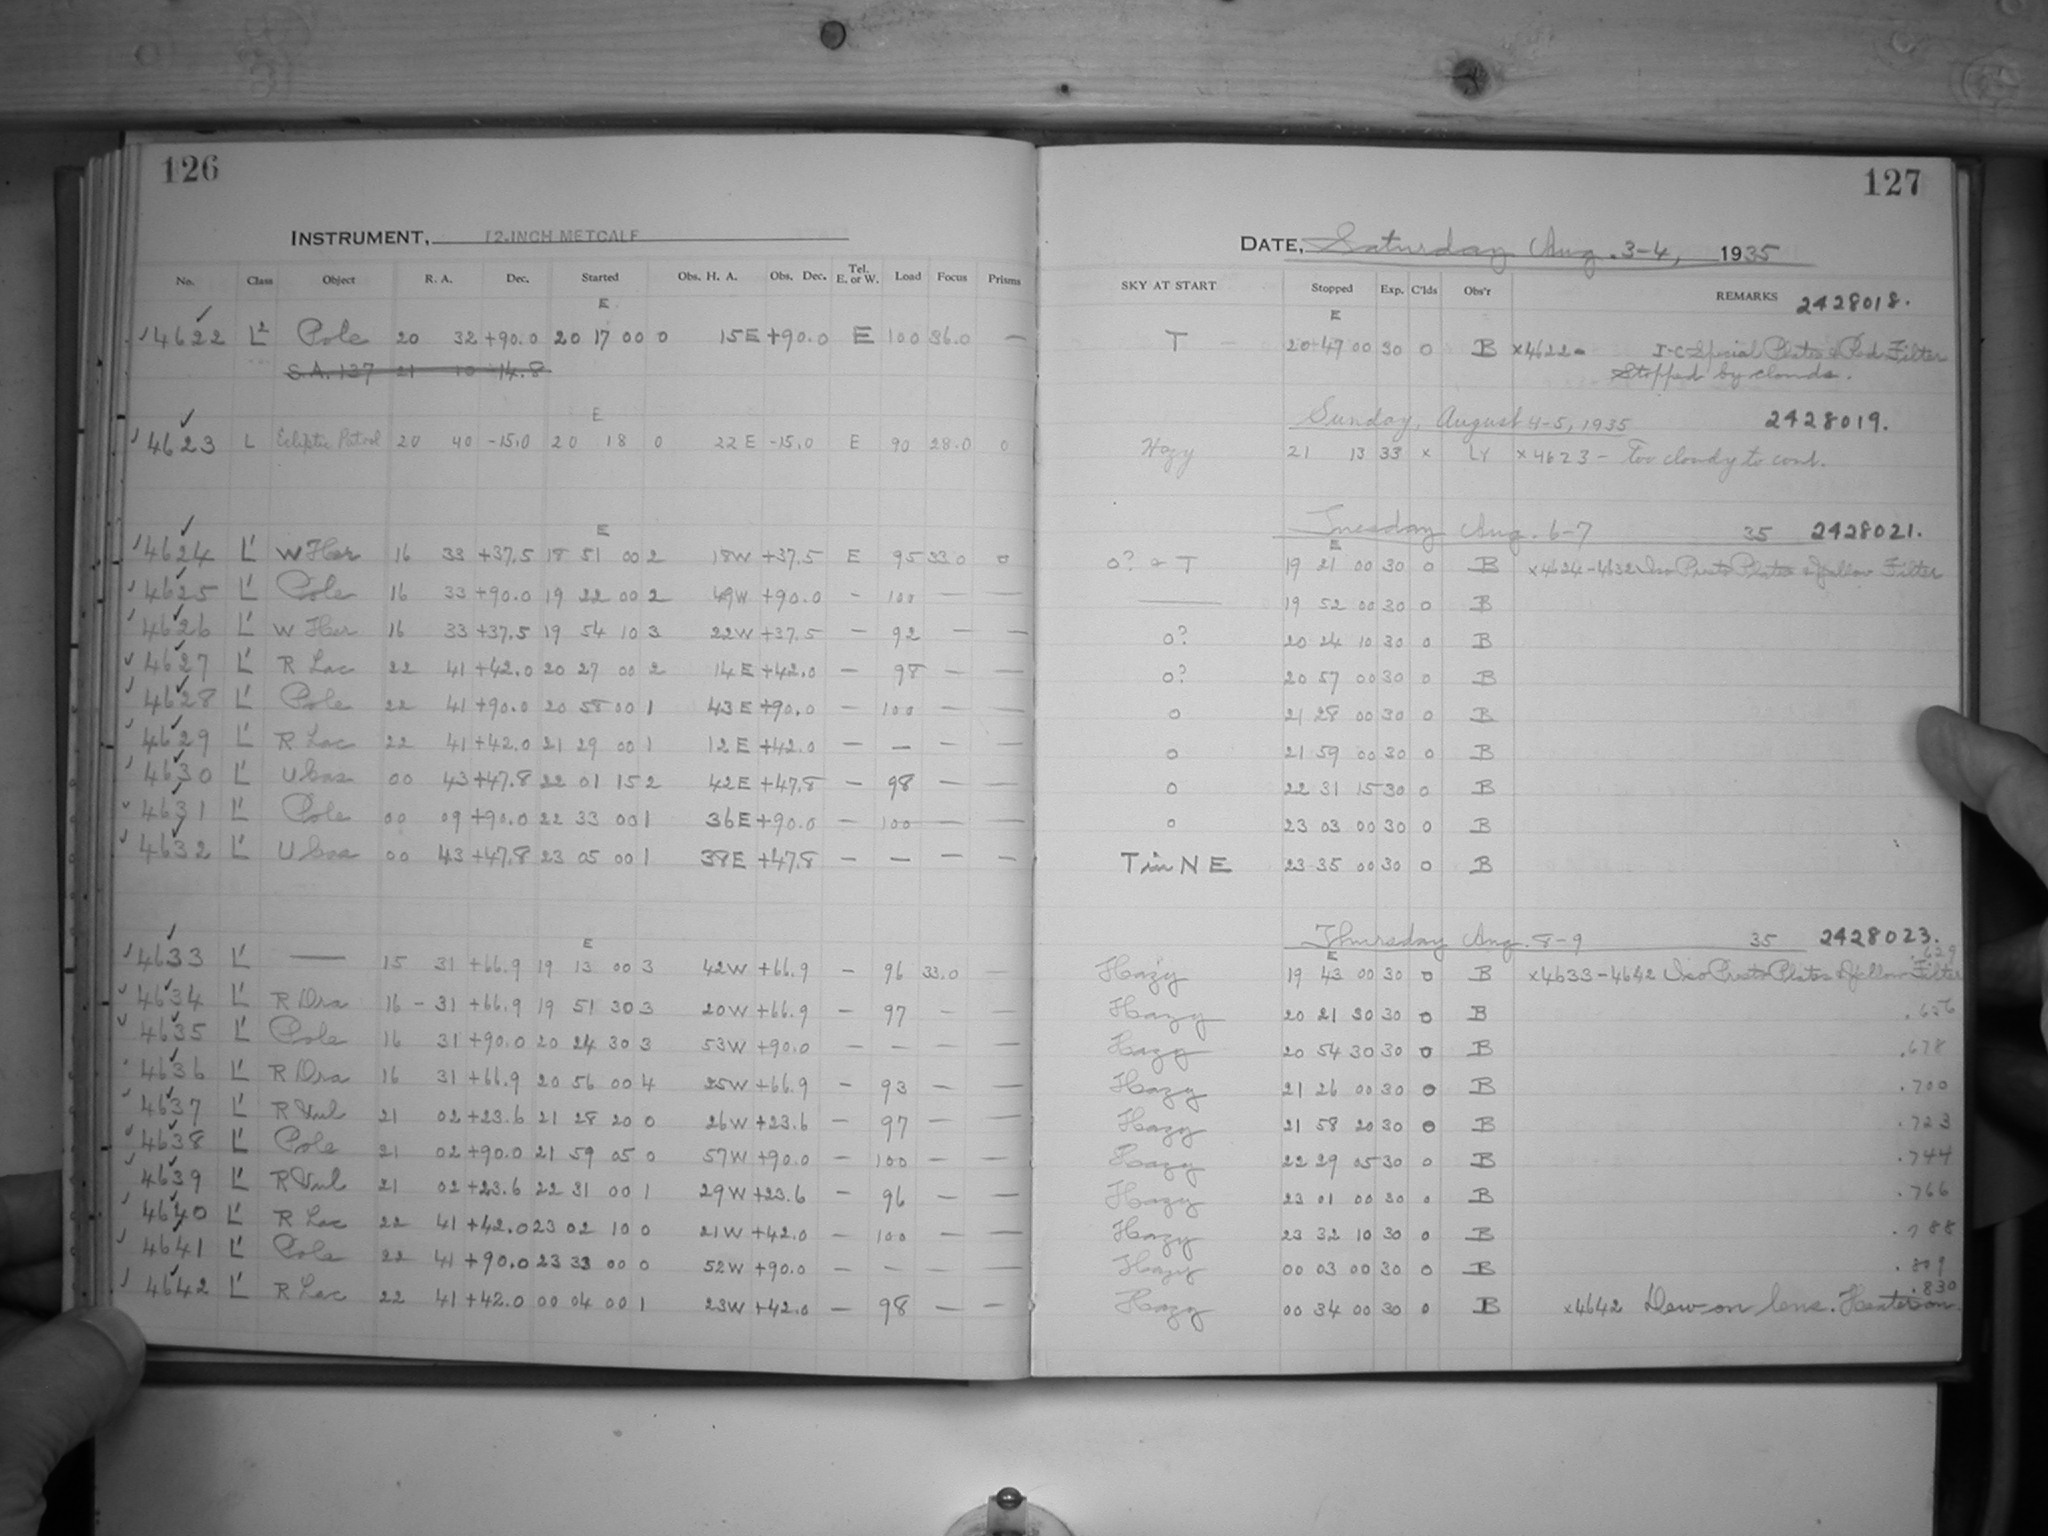 126
INSTRUMENT, 12-INCH METCALF
No. Class Object R. A. Dec. Started Obs. H. A. Obs. Dec. Tel. E. or W. Load Focus Prisms
E
4622 L² Pole 20 32 +90.0 20 17 00 0 15 E +90.0 E 100 36.0 —
S.A. 137 21 10 -14.8
E
4623 L Ecliptic Patrol 20 40 -15.0 20 18 0 22 E -15.0 E 90 28.0 0
E
4624 L' W Her 16 33 +37.5 18 51 00 2 18W +37.5 E 95 33.0 0
4625 L' Pole 16 33 +90.0 19 22 00 2 49W +90.0 — 100 — —
4626 L' W Her 16 33 +37.5 19 54 10 3 22W +37.5 — 92 — —
4627 L' R Lac 22 41 +42.0 20 27 00 2 14 E +42.0 — 98 — —
4628 L' Pole 22 41 +90.0 20 58 00 1 43 E +90.0 — 100 — —
4629 L' R Lac 22 41 +42.0 21 29 00 1 12 E +42.0 — — — —
4630 L' U Cas 00 43 +47.8 22 01 15 2 42E +47.8 — 98 — —
4631 L' Pole 00 09 +90.0 22 33 00 1 36E +90.0 — 100 — —
4632 L' U Cas 00 43 +47.8 23 05 00 1 38E +47.8 — — — —
E
4633 L' — 15 31 +66.9 19 13 00 3 42W +66.9 — 96 33.0 —
4634 L' R Dra 16 - 31 +66.9 19 51 30 3 20W +66.9 — 97 — —
4635 L' Pole 16 31 +90.0 20 24 30 3 53W +90.0 — — — —
4636 L' R Dra 16 31 +66.9 20 56 00 4 25W +66.9 — 93 — —
4637 L' R Vul 21 02 +23.6 21 28 20 0 26W +23.6 — 97 — —
4638 L' Pole 21 02 +90.0 21 59 05 0 57W +90.0 — 100 — —
4639 L' R Vul 21 02 +23.6 22 31 00 1 29W +23.6 — 96 — —
4640 L' R Lac 22 41 +42.0 23 02 10 0 21W +42.0 — 100 — —
4641 L' Pole 22 41 +90.0 23 33 00 0 52W +90.0 — — — —
4642 L' R Lac 22 41 +42.0 00 04 00 1 23W +42.0 — 98 — —
127
DATE, Saturday Aug. 3-4, 1935
SKY AT START Stopped Exp. C'lds Obs'r REMARKS 2428018.
E
T 20 47 00 30 0 B x4622- I-C Special Plates & Red Filter
Stopped by clouds.
Sunday, August 4-5, 1935 2428019.
Hazy 21 13 33 x LY x4623 - Too cloudy to cont.
Tuesday Aug. 6-7 35 2428021.
E
0? & T 19 21 00 30 0 B x4624-4632 Iso Presto Plates & Yellow Filter
— 19 52 00 30 0 B
0? 20 24 10 30 0 B
0? 20 57 00 30 0 B
0 21 28 00 30 0 B
0 21 59 00 30 0 B
0 22 31 15 30 0 B
0 23 03 00 30 0 B
T in N E 23 35 00 30 0 B
Thursday Aug. 8-9 35 2428023.
E .629
Hazy 19 43 00 30 0 B x4633-4642 Iso Presto Plates & Yellow Filter
Hazy 20 21 30 30 0 B .656
Hazy 20 54 30 30 0 B .678
Hazy 21 26 00 30 0 B .700
Hazy 21 58 20 30 0 B .723
Hazy 22 29 05 30 0 B .744
Hazy 23 01 00 30 0 B .766
Hazy 23 32 10 30 0 B .788
Hazy 00 03 00 30 0 B .809
.830
Hazy 00 34 00 30 0 B x4642 Dew on lens. Heater on.